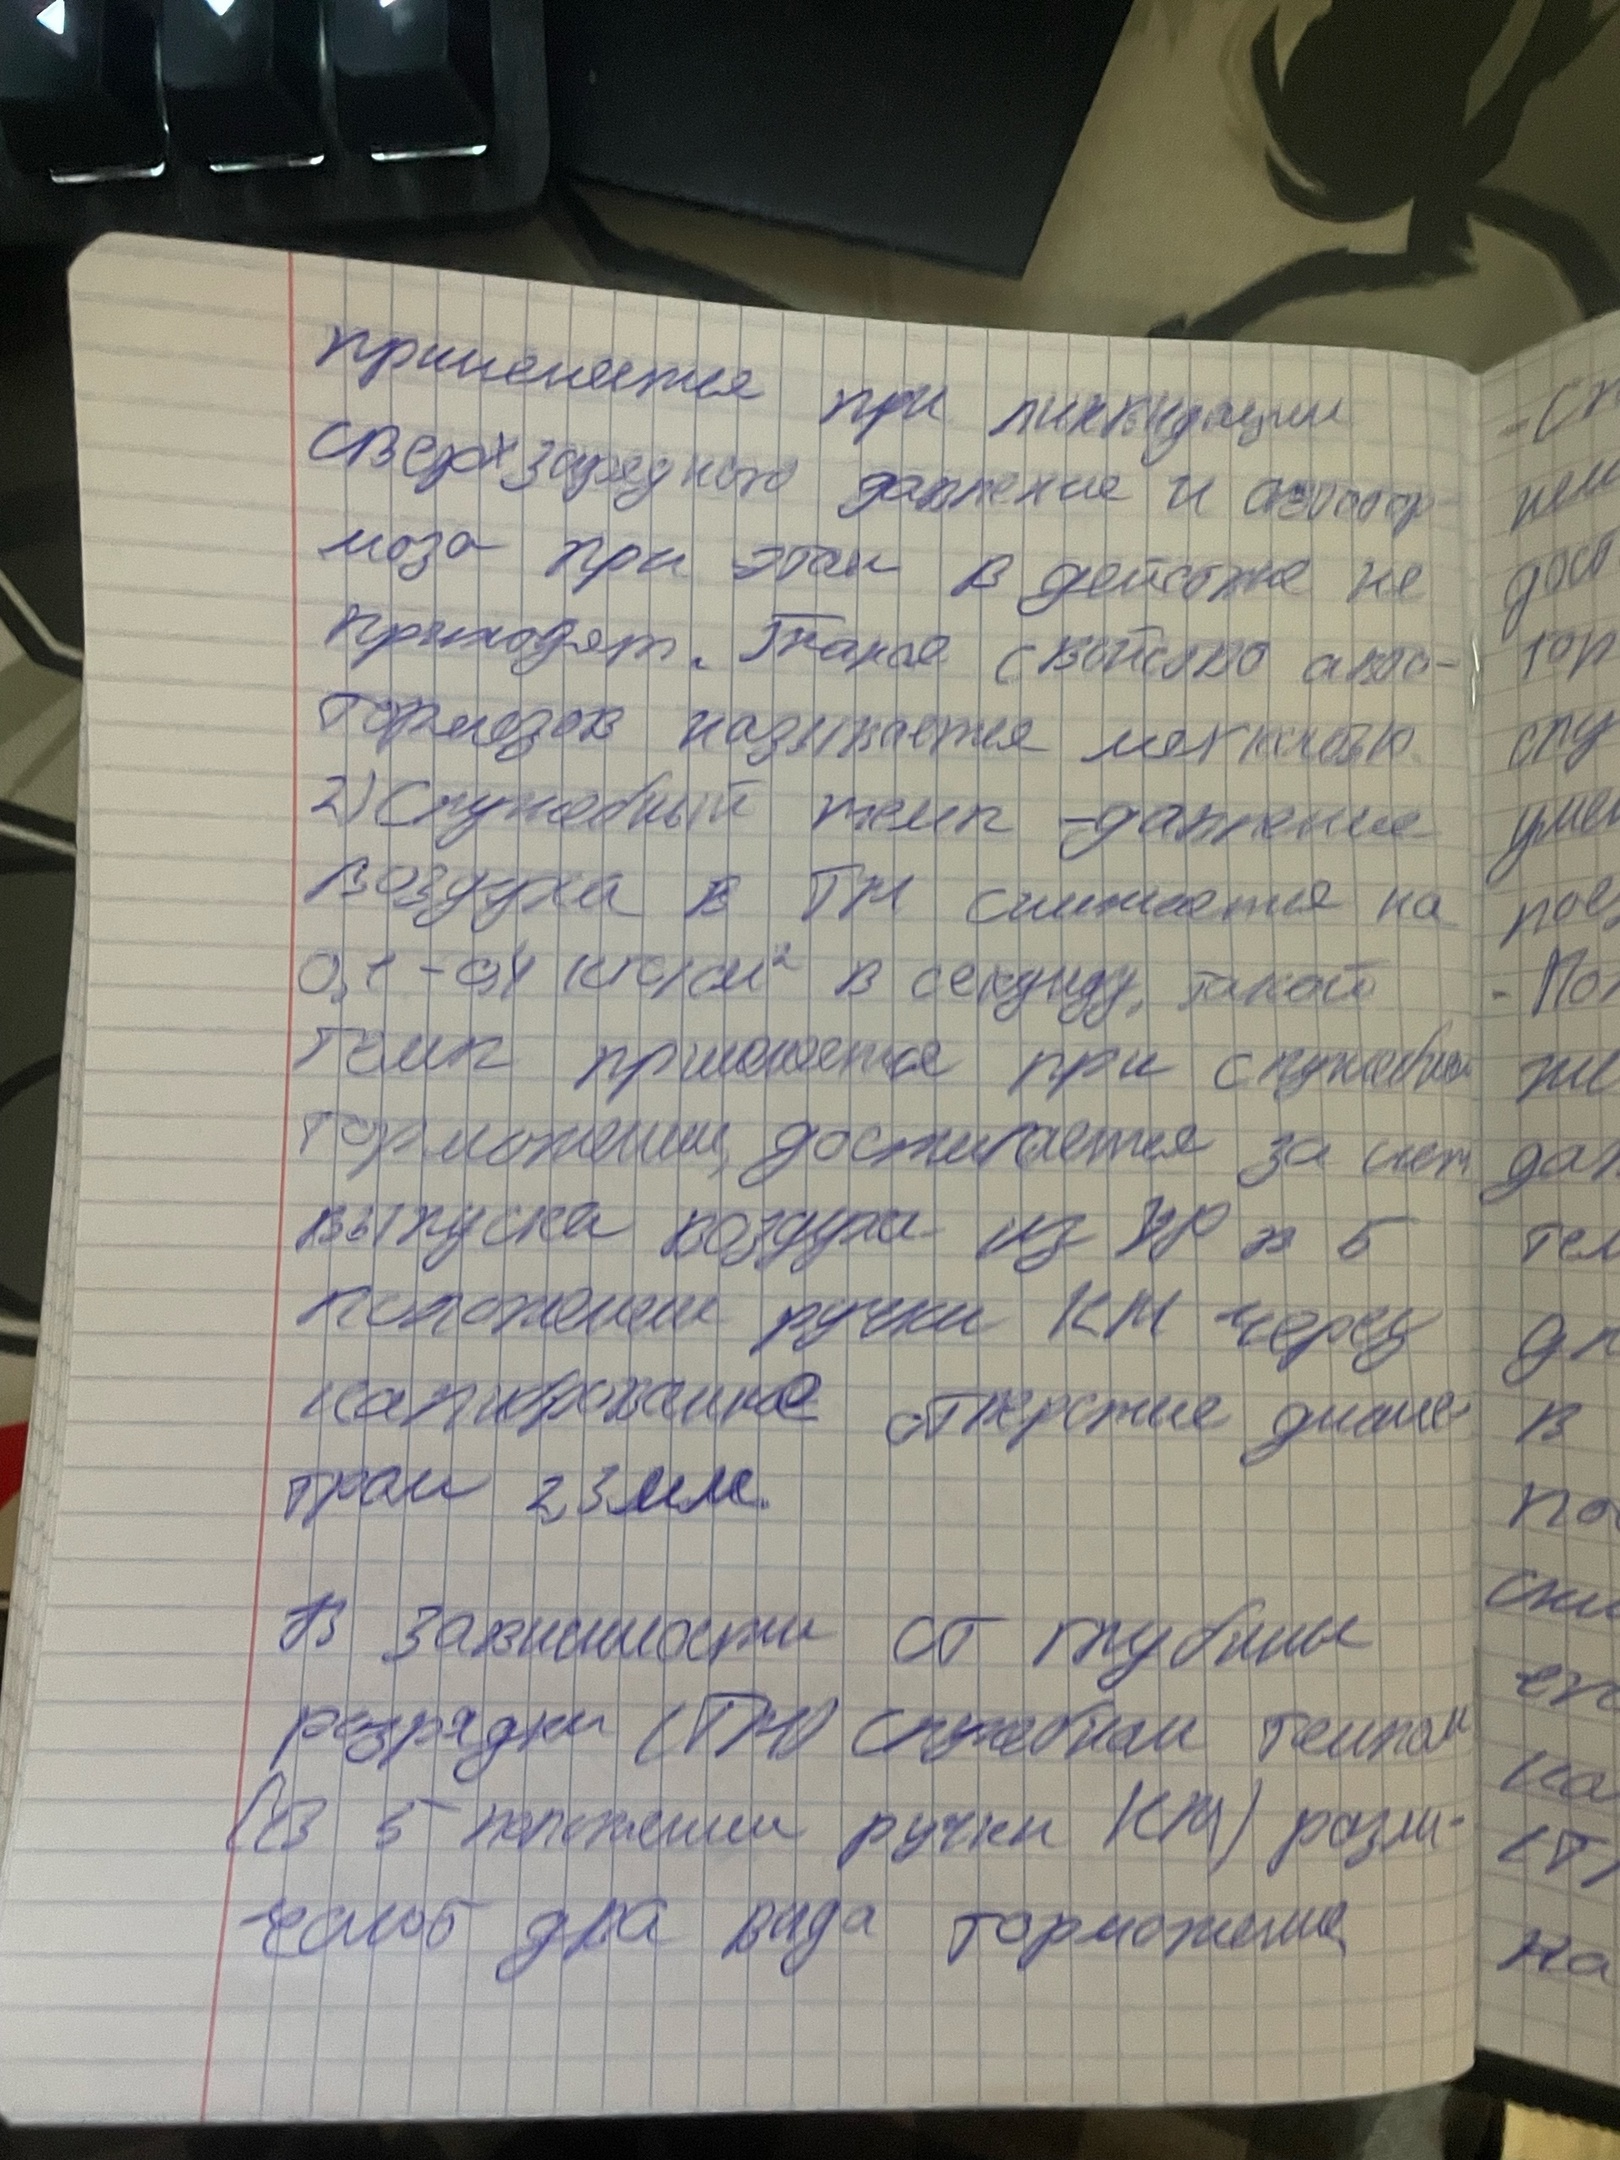 применяется при ликвидации
сверхзарядного давления и автотор-
моза при этом в действие не
приходят. Такое свойство авто-
тормозов называется мягкостью.
2) Служебный темп - давление
воздуха в ТМ снижается на
0,1-0,4 кгс/см² в секунду, такой
темп применяется при служебном
торможении, достигается за счет
выпуска воздуха из УР в 5
положении ручки КМ через
калиброванное отверстие диаме-
тром 2,3 мм.
В зависимости от глубины
разрядки (ТМ) служебным темпом
(в 5 положении ручки КМ) разли-
чают два вида торможения
- Сп
дост
тор
слу
умен
поез
- Пол
же
дав
тем
дл
в
по
сни
его
на
(Т
на